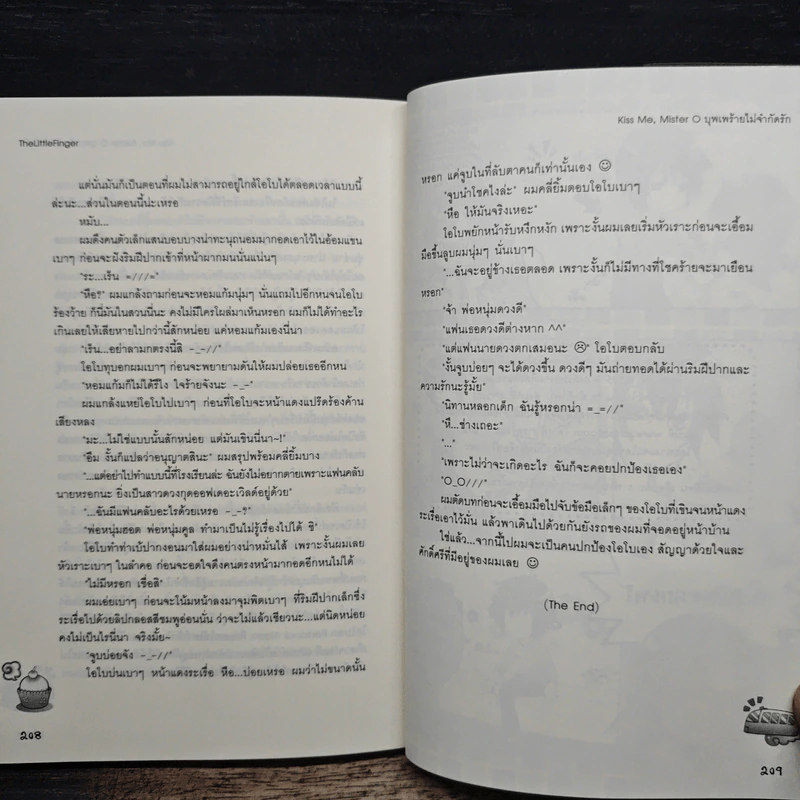 TheLittleFinger
แต่นั่นมันก็เป็นตอนที่ผมไม่สามารถอยู่ใกล้โอโบได้ตลอดเวลาแบบนี้
ล่ะนะ...ส่วนในตอนนี้น่ะเหรอ
หมับ...
ผมดึงคนตัวเล็กแสนบอบบางน่าทะนุถนอมมากอดเอาไว้ในอ้อมแขน
เบาๆ ก่อนจะฝังริมฝีปากเข้าที่หน้าผากมนนั่นแน่นๆ
"ระ...เร็น =///="
"หือ?" ผมแกล้งถามก่อนจะหอมแก้มนุ่มๆ นั่นแถมไปอีกหนจนโอโบ
ร้องว้าย ก็นี่มันในสวนนี่นะ คงไม่มีใครโผล่มาเห็นหรอก ผมก็ไม่ได้ทำอะไร
เกินเลยให้เสียหายไปกว่านี้สักหน่อย แค่หอมแก้มเองนี่นา
"เร็น...อย่าลามกตรงนี้สิ -_-//"
โอโบทุบอกผมเบาๆ ก่อนจะพยายามดันให้ผมปล่อยเธออีกหน
"หอมแก้มก็ไม่ได้รึไง ใจร้ายจังนะ -_-"
ผมแกล้งแหย่โอโบไปเบาๆ ก่อนที่โอโบจะหน้าแดงแปร๊ดร้องค้าน
เสียงหลง
"มะ...ไม่ใช่แบบนั้นสักหน่อย แต่มันเขินนี่นา-!"
"อืม งั้นก็แปลว่าอนุญาตสินะ" ผมสรุปพร้อมคลี่ยิ้มบาง
"...แต่อย่าไปทำแบบนี้ที่โรงเรียนล่ะ ฉันยังไม่อยากตายเพราะแฟนคลับ
นายหรอกนะ ยิ่งเป็นสาวดวงกุดออฟเดอะเวิลด์อยู่ด้วย"
"...ฉันมีแฟนคลับอะไรด้วยเหรอ -_-?"
"พ่อหนุ่มฮอต พ่อหนุ่มคูล ทำมาเป็นไม่รู้เรื่องไปได้ ชิ"
โอโบทำท่าเบ้ปากงอนมาใส่ผมอย่างน่าหมั่นไส้ เพราะงั้นผมเลย
หัวเราะเบาๆ ในลำคอ ก่อนจะอดใจดึงคนตรงหน้ามากอดอีกหนไม่ได้
"ไม่มีหรอก เชื่อสิ"
ผมเอ่ยเบาๆ ก่อนจะโน้มหน้าลงมาจุมพิตเบาๆ ที่ริมฝีปากเล็กซึ่ง
ระเรื่อไปด้วยลิปกลอสสีชมพูอ่อนนั่น ว่าจะไม่แล้วเชียวนะ...แต่นิดหน่อย
คงไม่เป็นไรนี่นา จริงมั้ย~
"จูบบ่อยจัง -_-//"
โอโบบ่นเบาๆ หน้าแดงระเรื่อ หือ...บ่อยเหรอ ผมว่าไม่ขนาดนั้น
208
Kiss Me, Mister O บุพเพร้ายไม่จำกัดรัก
หรอก แค่จูบในที่ลับตาคนก็เท่านั้นเอง ☺
"จูบนำโชคไงล่ะ" ผมคลี่ยิ้มตอบโอโบเบาๆ
"หือ ให้มันจริงเหอะ"
โอโบพยักหน้ารับหงึกหงัก เพราะงั้นผมเลยเริ่มหัวเราะก่อนจะเอื้อม
มือขึ้นลูบผมนุ่มๆ นั่นเบาๆ
"...ฉันจะอยู่ข้างเธอตลอด เพราะงั้นก็ไม่มีทางที่โชคร้ายจะมาเยือน
หรอก"
"จ้า พ่อหนุ่มดวงดี"
"แฟนเธอดวงดีต่างหาก ^^"
"แต่แฟนนายดวงตกเสมอนะ ☹" โอโบตอบกลับ
"งั้นจูบบ่อยๆ จะได้ดวงขึ้น ดวงดีๆ มันถ่ายทอดได้ผ่านริมฝีปากและ
ความรักนะรู้มั้ย"
"นิทานหลอกเด็ก ฉันรู้หรอกน่า =_=//"
"หึ...ช่างเถอะ"
"..."
"เพราะไม่ว่าจะเกิดอะไร ฉันก็จะคอยปกป้องเธอเอง"
"O_O///"
ผมตัดบทก่อนจะเอื้อมมือไปจับข้อมือเล็กๆ ของโอโบที่เขินจนหน้าแดง
ระเรื่อเอาไว้มั่น แล้วพาเดินไปด้วยกันยังรถของผมที่จอดอยู่หน้าบ้าน
ใช่แล้ว...จากนี้ไปผมจะเป็นคนปกป้องโอโบเอง สัญญาด้วยใจและ
ศักดิ์ศรีที่มีอยู่ของผมเลย ☺
(The End)
209